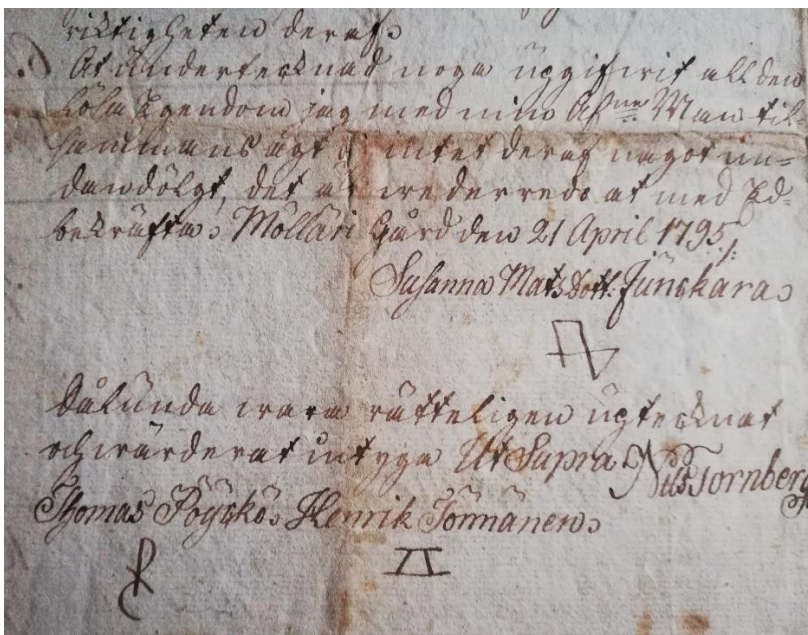 riktigheten deraf
At undertecknad noga upgifwit all den
Lösa Egendom jag med min Afne Man til-
hammans ägt, intet deraf något un-
dandölgt, det är irederredo at med Ed
bekräfta, Mölläri Gård den 21 April 1795
Susanna Mats Dott: Junskara
Sålunda wara rätteligen uptecknat
och wärderat intyga Ut Supra Nils Tornberg
Thomas Pöyskö Henrik Tönnänen